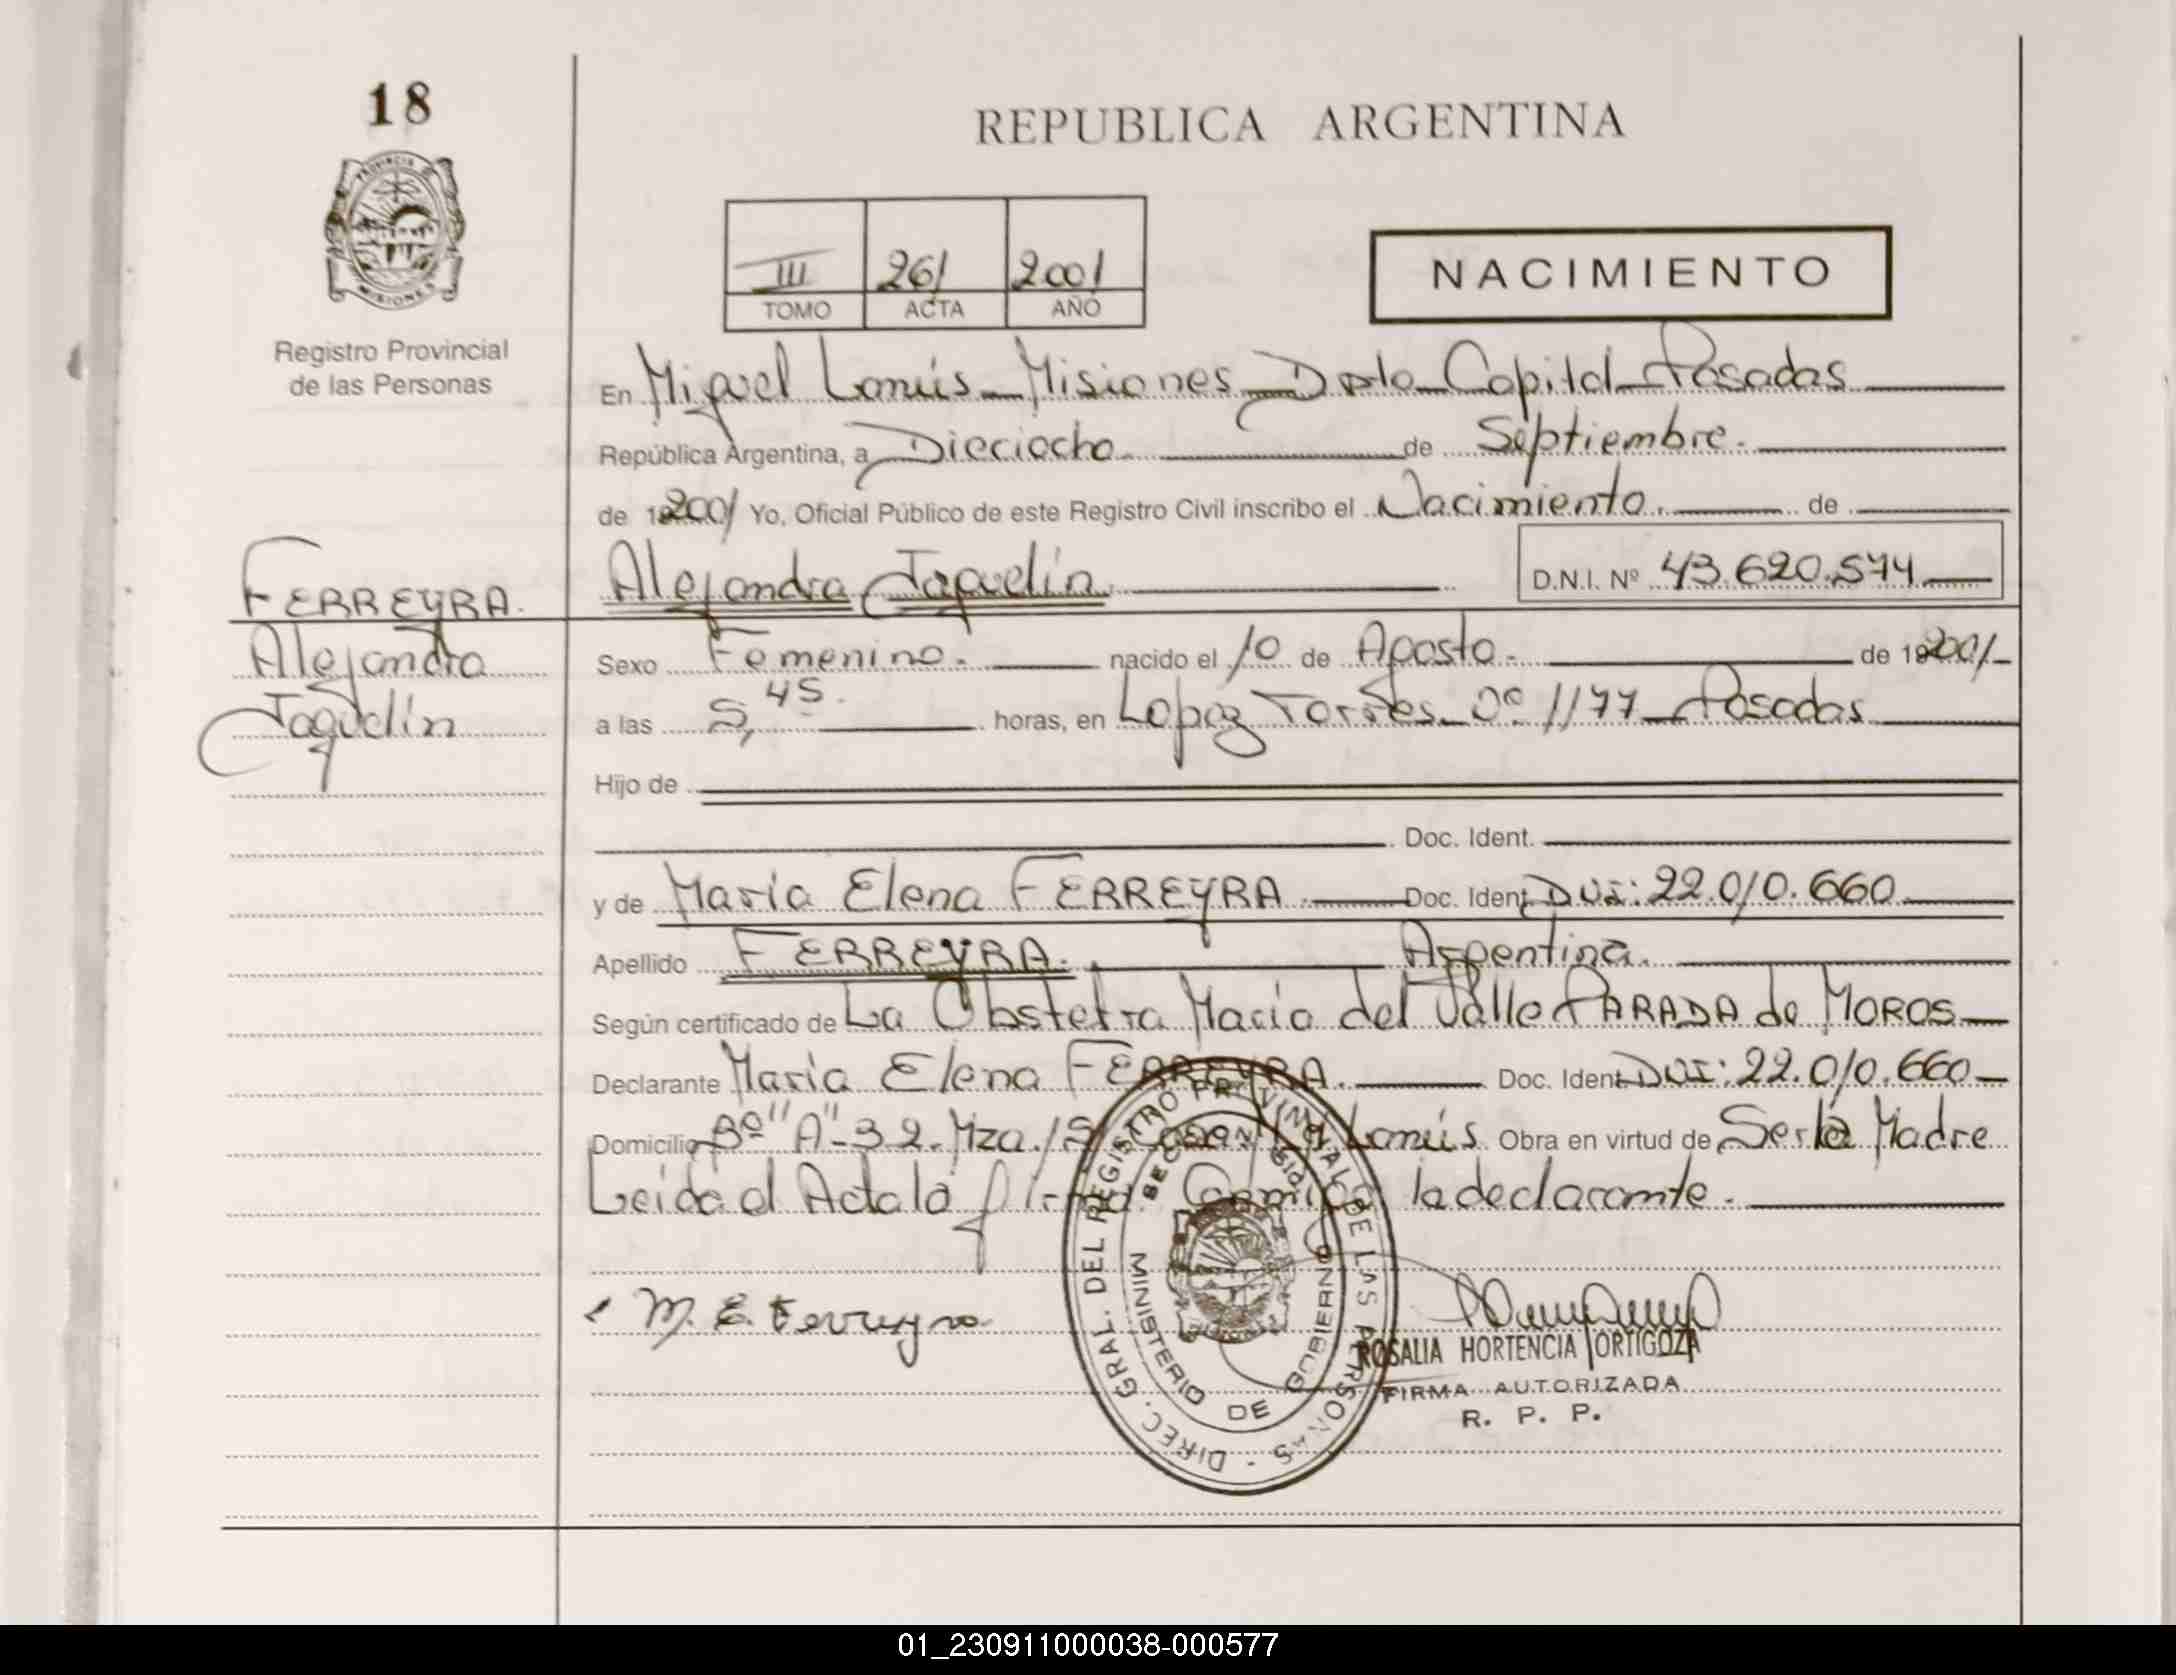 18
REPUBLICA ARGENTINA
PROVINCIA DE
MISIONES
Registro Provincial
de las Personas
III 261 2001
TOMO ACTA AÑO
NACIMIENTO
En Miguel Lanús - Misiones - Dpto - Capital - Posadas
República Argentina, a Dieciocho de Septiembre.
de 2001 Yo, Oficial Público de este Registro Civil inscribo el Nacimiento. de
FERREYRA.
Alejandra
Jaquelín
Alejandra Jaquelín D.N.I. Nº 43.620.574
Sexo Femenino. nacido el 10 de Agosto. de 2001
a las 5,45. horas, en Lopez Torres nº 1177 - Posadas
Hijo de
Doc. Ident.
y de María Elena FERREYRA. Doc. Ident. DNI: 22.010.660
Apellido FERREYRA. Argentina.
Según certificado de La Obstetra María del Valle PARADA de MOROS
Declarante María Elena FERREYRA. Doc. Ident. DNI: 22.010.660
Domicilio Bº "A"-32. Mza. Casa Lanús. Obra en virtud de Ser la Madre
Leida el Acta la firma Conmigo la declarante.
M. E. Ferreyra
DIREC. GRAL. DEL REGISTRO PROVINCIAL DE LAS PERSONAS -
MINISTERIO DE GOBIERNO
ROSALIA HORTENCIA ORTIGOZA
FIRMA AUTORIZADA
R. P. P.
01_230911000038-000577